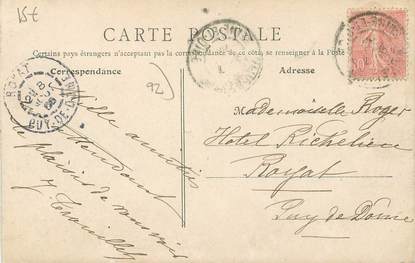 15€
CARTE POSTALE
Certains pays étrangers n'acceptant pas la correspondance de ce côté, se renseigner à la Poste
Correspondance
Adresse
92
ROYAT
PUY-DE-DOME
Mille amitiés
en attendant
le plaisir de vous voir
Mademoiselle Roger
Hotel Richelieu
Royat
Puy de Dome